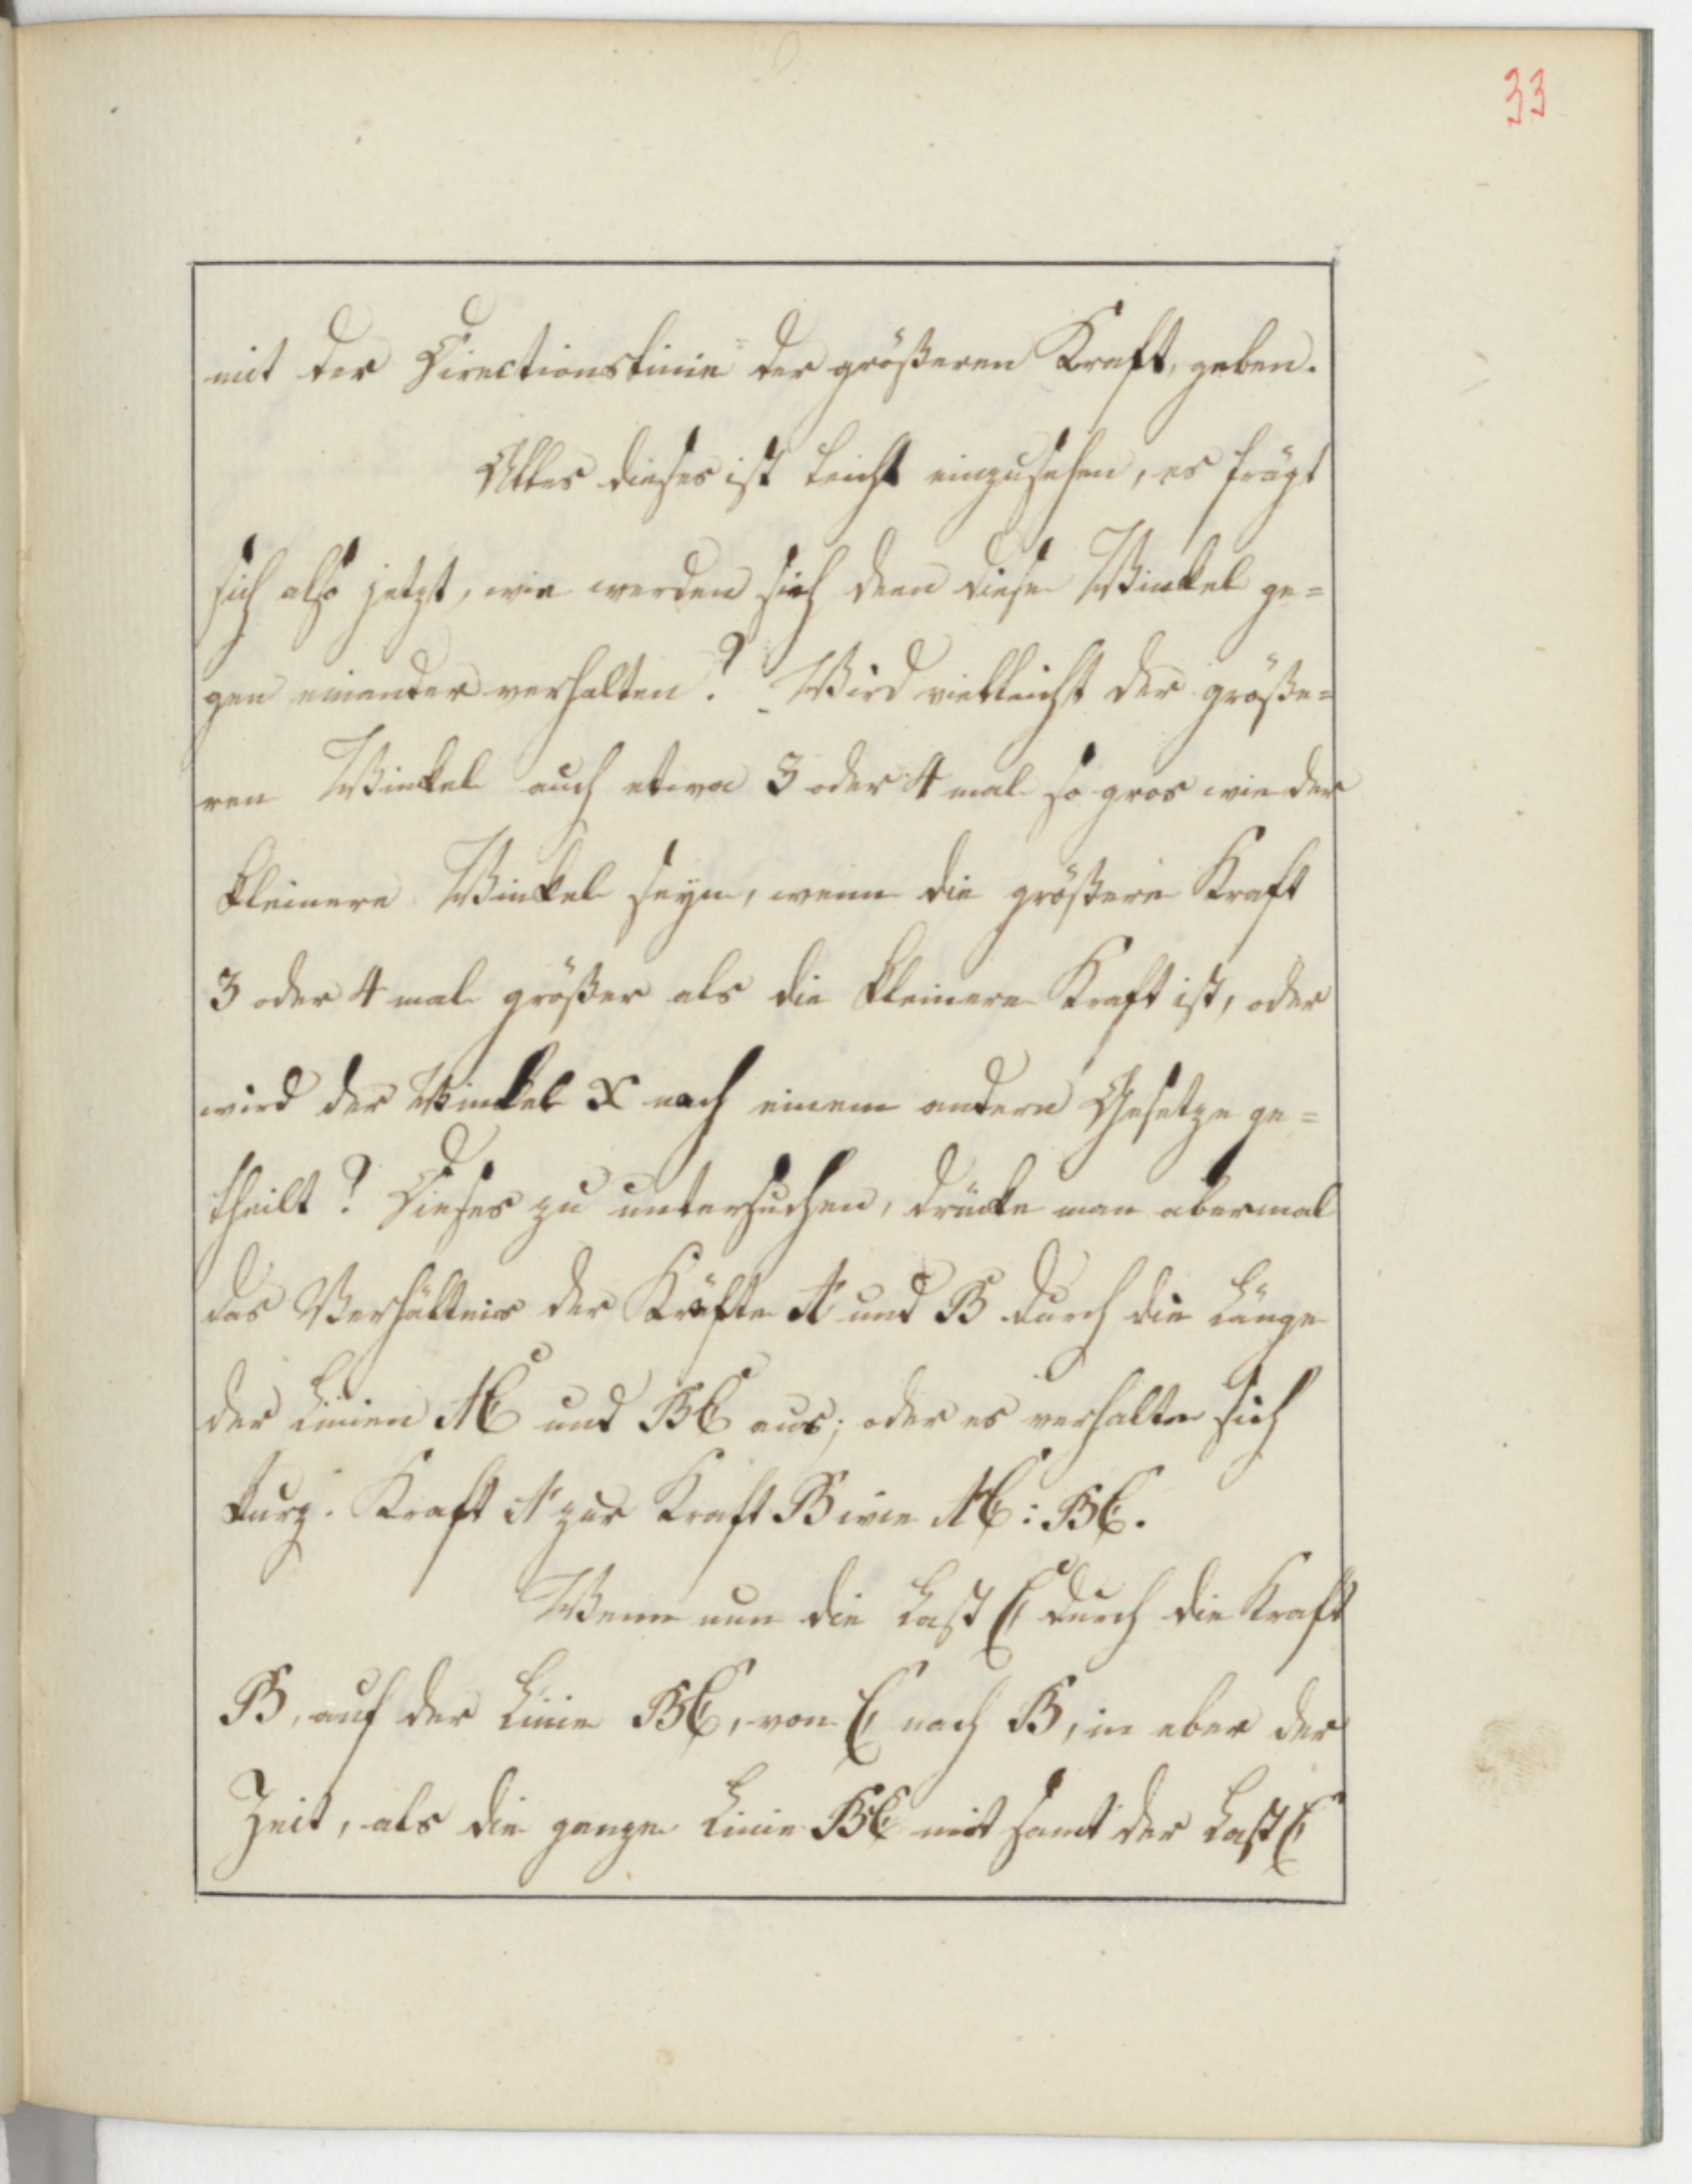 33
mit der Directionslinie der größeren Kraft, geben.
Alles dieses ist leicht einzusehen, es frägt
sich also jetzt, wie werden sich denn diese Winkel ge=
gen einander verhalten? Wird vielleicht der größe=
ren Winkel auch etwa 3 oder 4 mal so gros wie der
kleinere Winkel seyn, wenn die größere Kraft
3 oder 4 mal größer als die kleinere Kraft ist, oder
wird der Winkel X nach einem andern Gesetze ge=
theilt? Dieses zu untersuchen, drücke man abermal
das Verhältnis der Kräfte A und B durch die Länge
der Linien AC und BC aus; oder es verhalte sich
kurz. Kraft A zur Kraft B wie AC : BC.
Wenn nun die Last C durch die Kraft
B, auf der Linie BC, von C nach B, in eber der
Zeit, als die ganze Linie BC mit samt der Last C